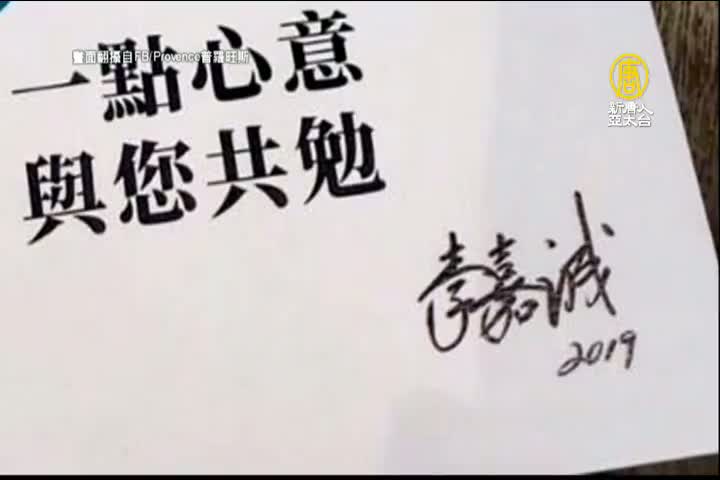 畫面翻攝自FB/Provence普羅旺斯
一點心意
與您共勉
李嘉誠
2019
唐
新唐人
亞太台